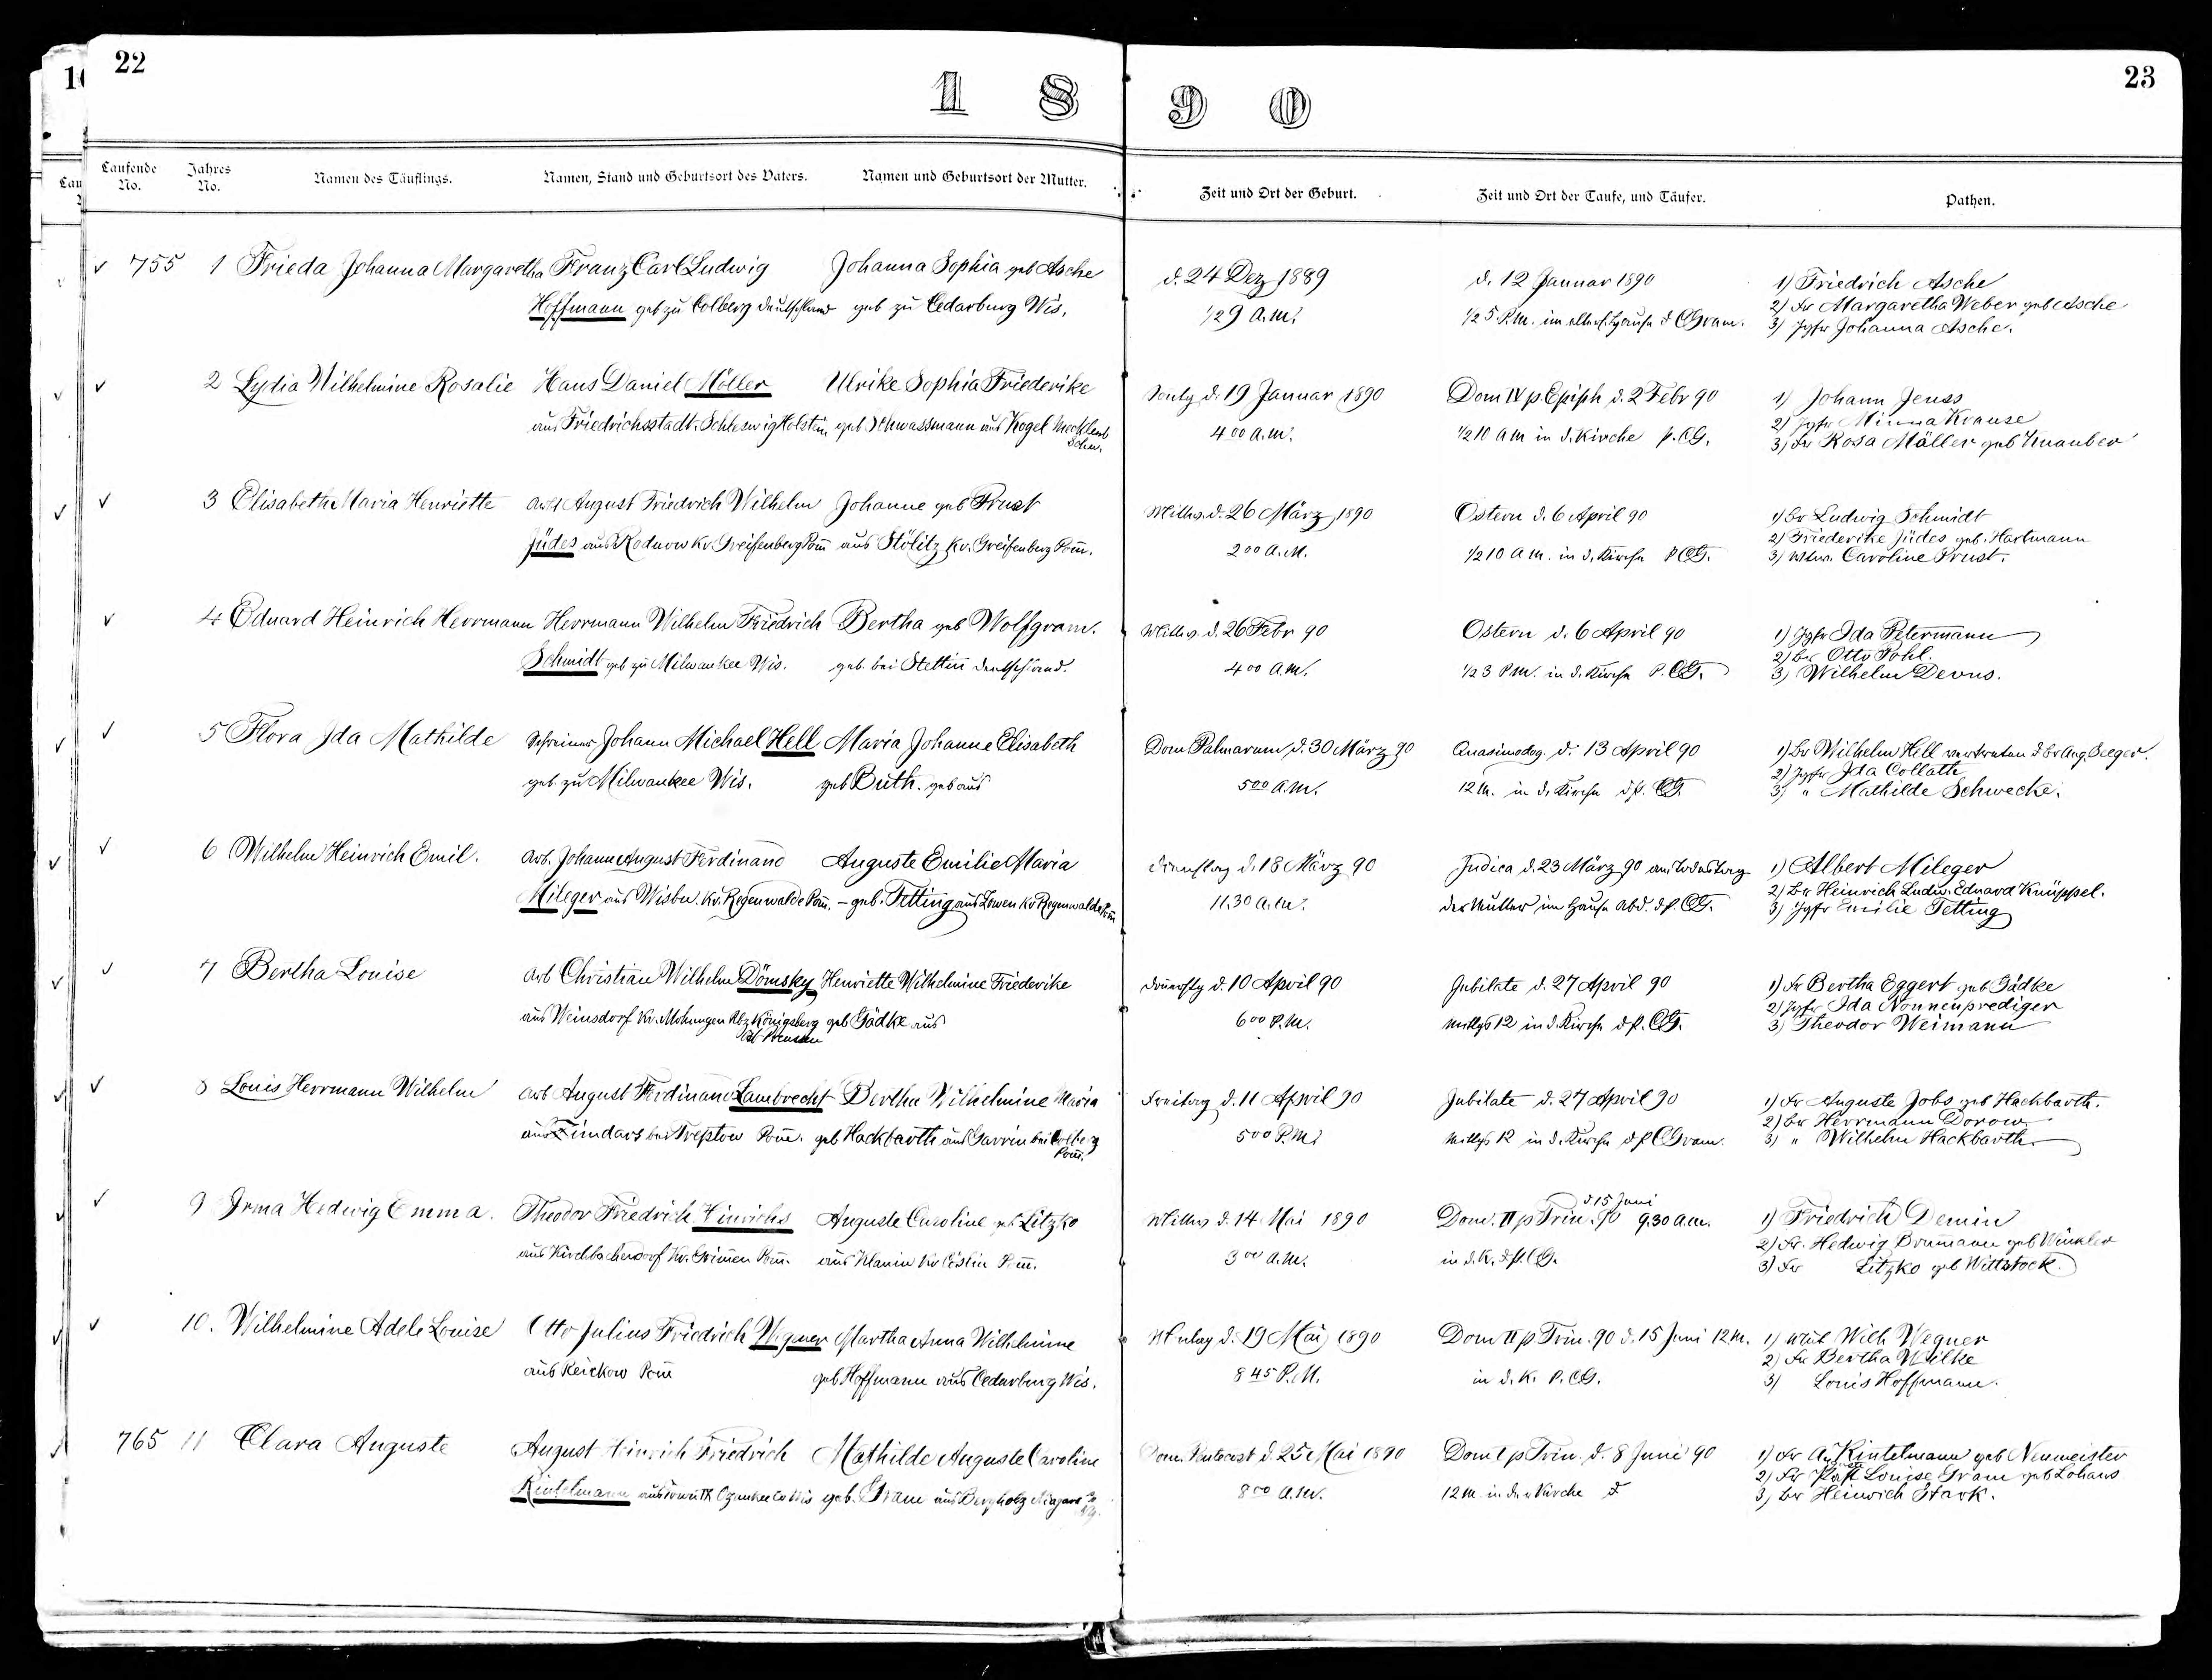 22
23
1 8 9 0
Laufende No.
Jahres No.
Namen des Täuflings.
Namen, Stand und Geburtsort des Vaters.
Namen und Geburtsort der Mutter.
Zeit und Ort der Geburt.
Zeit und Ort der Taufe, und Täufer.
Pathen.
755 1 Frieda Johanna Margaretha Franz Carl Ludwig Johanna Sophia geb Asche d. 24 Dez 1889 d. 12 Januar 1890 1) Friedrich Asche
2) Fr Margaretha Weber geb Asche
Hoffmann geb zu Colberg Deutschland geb zu Cedarburg Wis. 1/2 9 A.M. 1/2 5 P.M. im elterl. Hause d CGram. 3) Jgfr Johanna Asche.
2 Lydia Wilhelmine Rosalie Hans Daniel Möller Ulrike Sophia Friederike Sontg d. 19 Januar 1890 Dom IV p. Epiph d. 2 Febr 90 1) Johann Jenss
2) Jgfr Minna Krause
aus Friedrichsstadt. Schleswig Holstein geb Schwassmann aus Kogel Mecklenb Schw. 4 00 A.M. 1/2 10 AM in d. Kirche p. CG. 3) Fr Rosa Möller geb Knauber
3 Elisabeth Maria Henriette Arb August Friedrich Wilhelm Johanne geb Prust Mittw. d. 26 März 1890 Ostern d. 6 April 90 1) Br Ludwig Schmidt
2) Friederike Jüdes geb. Hartmann
Jüdes aus Rodnow Kr. Greifenberg Pom̄ aus Stölitz Kr. Greifenberg Pom̄. 2 00 A.M. 1/2 10 A M. in d. Kirche P CG. 3) Wtw. Caroline Prust.
4 Eduard Heinrich Herrmann Herrmann Wilhelm Friedrich Bertha geb Wolfgram. Mittw. d. 26 Febr 90 Ostern d. 6 April 90 1) Jgfr Ida Petermann
2) Br Otto Pohl.
Schmidt geb zu Milwaukee Wis. geb. bei Stettin Deutschland. 4 00 A.M. 1/2 3 P.M. in d. Kirche P. CG. 3) Wilhelm Devus.
5 Flora Ida Mathilde Schreiner Johann Michael Hell Maria Johanne Elisabeth Dom Palmarum d. 30 März 90 Quasimodog. d. 13 April 90 1) Br Wilhelm Hell vertreten d Br Aug. Seeger.
2) Jgfr Ida Collath
geb. zu Milwaukee Wis. geb Buth. geb aus 5 00 A.M. 12 M. in d. Kirche d p. CG. 3) " Mathilde Schwecke.
6 Wilhelm Heinrich Emil. Arb. Johann August Ferdinand Auguste Emilie Maria Dienstag d. 18 März 90 Judica d. 23 März 90 am Todestag 1) Albert Mileger
2) Br Heinrich Ludw. Eduard Knüppel.
Mileger aus Wisbu. Kr. Regenwalde Pom̄. – geb. Tetting aus Lowen Kr Regenwalde Pom̄ 11.30 A.M. der Mutter im Hause Abd. d p. CG. 3) Jgfr Emilie Tetting
7 Bertha Louise Arb Christian Wilhelm Dömsky Henriette Wilhelmine Friederike Donnerstg d. 10 April 90 Jubilate d. 27 April 90 1) Fr Bertha Eggert geb Gädke
2) Jgfr Ida Nonnenprediger
aus Weinsdorf Kr. Mohrungen Rbz Königsberg geb Gädke aus 6 00 P.M. Mittgs 12 in d. Kirche d p. CG. 3) Theodor Weimann
Ost Preussen
8 Louis Herrmann Wilhelm Arb August Ferdinand Lambrecht Bertha Wilhelmine Maria Freitag d. 11 April 90 Jubilate d. 27 April 90 1) Fr Auguste Jobs geb Hackbarth.
2) Br Herrmann Dorow
aus Zimdars bei Treptow Pom̄. geb Hackbarth aus Garrin bei Colberg Pom̄. 5 00 P.M. Mittgs 12 in d. Kirche d p CGram. 3) " Wilhelm Hackbarth
9 Irma Hedwig Emma. Theodor Friedrich Hinrichs Auguste Caroline geb Litzko Mittw d. 14 Mai 1890 Dom. II p Trin. 90 d 15 Juni 9.30 a.m. 1) Friedrich Demin
2) Fr. Hedwig Brumann geb Winkler
aus Kr. Grimen Pom̄. aus Manin Kr Cöslin Pom̄. 3 00 A.M. in d. K. d p. CG. 3) Fr Litzko geb Wittstock.
10. Wilhelmine Adele Louise Otto Julius Friedrich Wegner Martha Anna Wilhelmine Montag d. 19 Mai 1890 Dom II p Trin. 90 d. 15 Juni 12 M. 1) Wilh Wegner
2) Fr Bertha Wilke
aus Reickow Pom̄ geb Hoffmann aus Cedarburg Wis. 8 45 P.M. in d. K. P. CG. 3) Louis Hoffmann.
765 11 Clara Auguste August Heinrich Friedrich Mathilde Auguste Caroline Dom. Pentecost d. 25 Mai 1890 Dom I p Trin. d. 8 Juni 90 1) Fr Aug Rintelmann geb Neumeister
2) Fr Past Louise Gram geb Lohaus
Rintelmann aus Town IX Ozaukee Co Wis geb. Gram aus Bergholz Niagara Co 8 00 A.M. 12 M. in der Kirche d 3) Br Heinrich Stark.